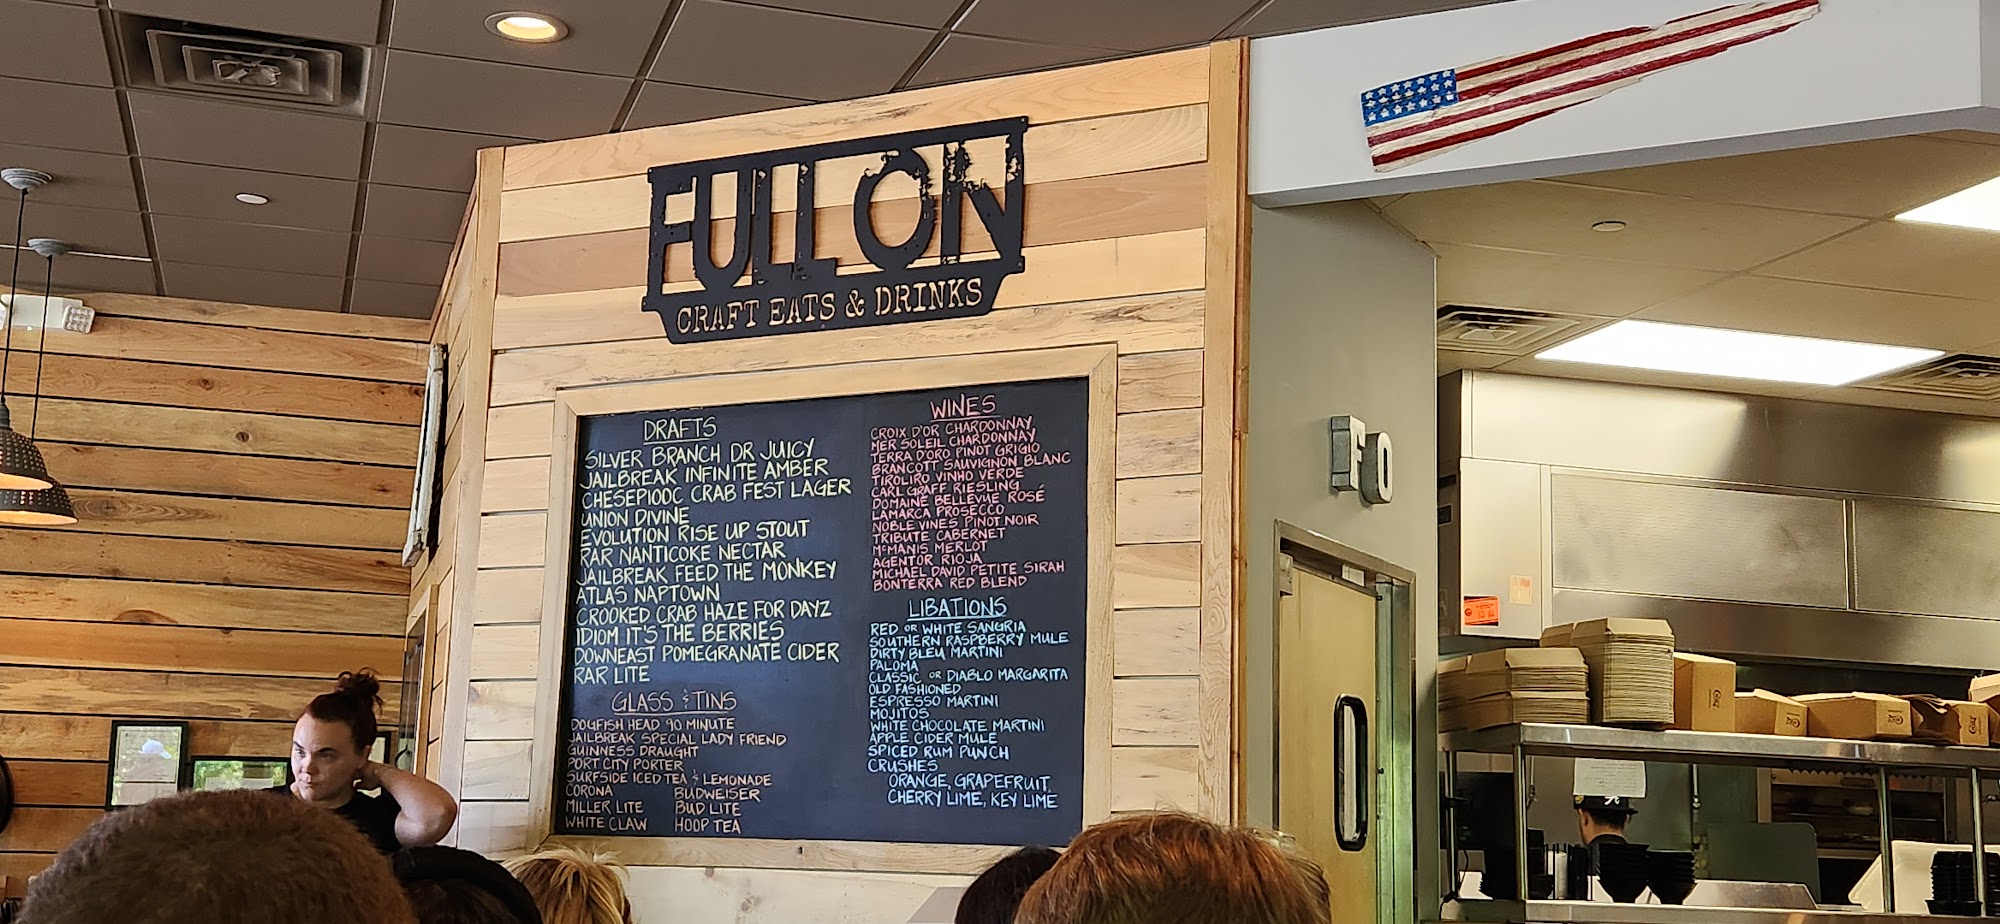 FULL ON
CRAFT EATS & DRINKS
DRAFTS
SILVER BRANCH DR JUICY
JAILBREAK INFINITE AMBER
CHESEPIOOC CRAB FEST LAGER
UNION DIVINE
EVOLUTION RISE UP STOUT
RAR NANTICOKE NECTAR
JAILBREAK FEED THE MONKEY
ATLAS NAPTOWN
CROOKED CRAB HAZE FOR DAYZ
IDIOM IT'S THE BERRIES
DOWNEAST POMEGRANATE CIDER
RAR LITE
GLASS & TINS
DOGFISH HEAD 90 MINUTE
JAILBREAK SPECIAL LADY FRIEND
GUINNESS DRAUGHT
PORT CITY PORTER
SURFSIDE ICED TEA & LEMONADE
CORONA BUDWEISER
MILLER LITE BUD LITE
WHITE CLAW HOOP TEA
WINES
CROIX D'OR CHARDONNAY
MER SOLEIL CHARDONNAY
TERRA D'ORO PINOT GRIGIO
BRANCOTT SAUVIGNON BLANC
TIROLIRO VINHO VERDE
CARL GRAFF RIESLING
DOMAINE BELLEVUE ROSÉ
LAMARCA PROSECCO
NOBLE VINES PINOT NOIR
TRIBUTE CABERNET
McMANIS MERLOT
AGENTOR RIOJA
MICHAEL DAVID PETITE SIRAH
BONTERRA RED BLEND
LIBATIONS
RED OR WHITE SANGRIA
SOUTHERN RASPBERRY MULE
DIRTY BLEU MARTINI
PALOMA
CLASSIC OR DIABLO MARGARITA
OLD FASHIONED
ESPRESSO MARTINI
MOJITOS
WHITE CHOCOLATE MARTINI
APPLE CIDER MULE
SPICED RUM PUNCH
CRUSHES
ORANGE, GRAPEFRUIT,
CHERRY LIME, KEY LIME
FO